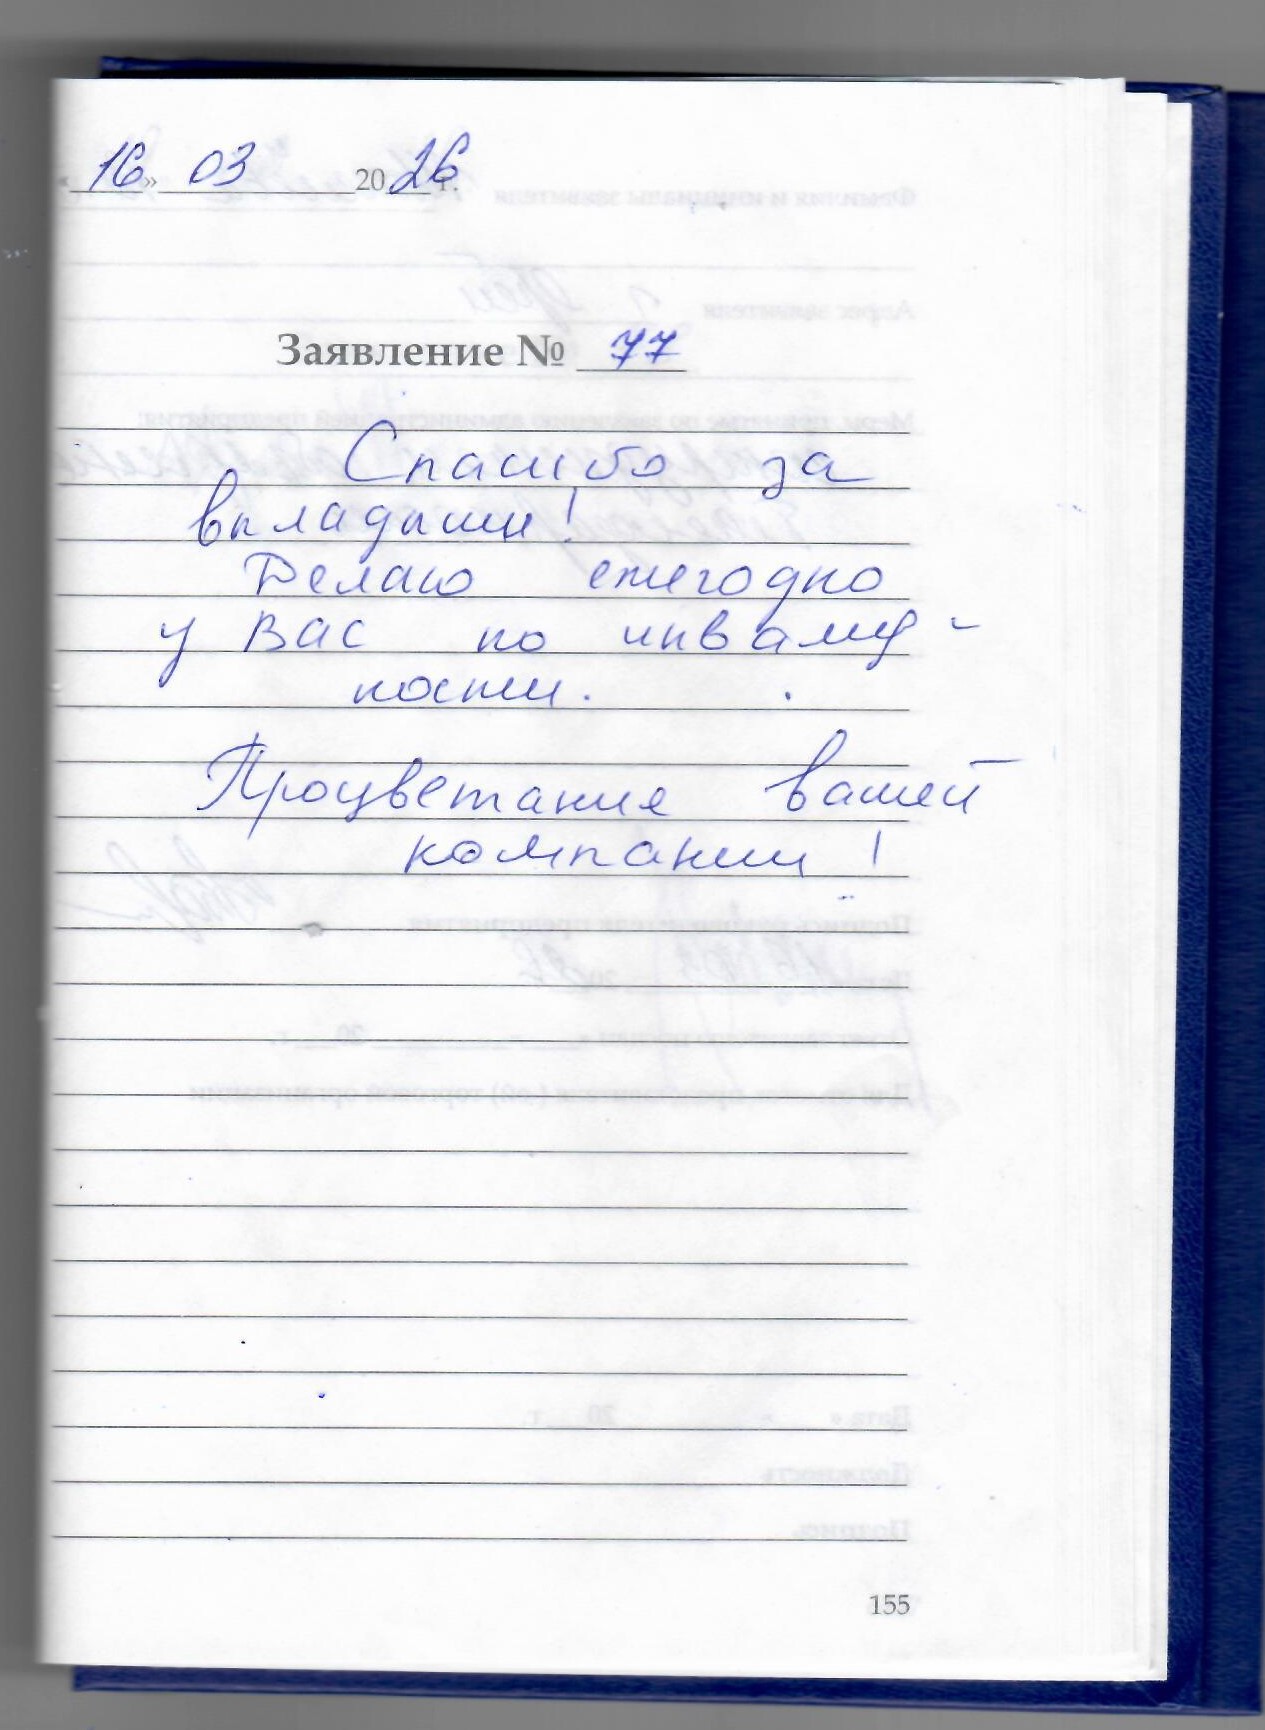 16» 03 2026 г.
Заявление № 77
Спасибо за
вкладыши!
Делаю ежегодно
у Вас по инвалид-
ности.
Процветания вашей
компании!
155